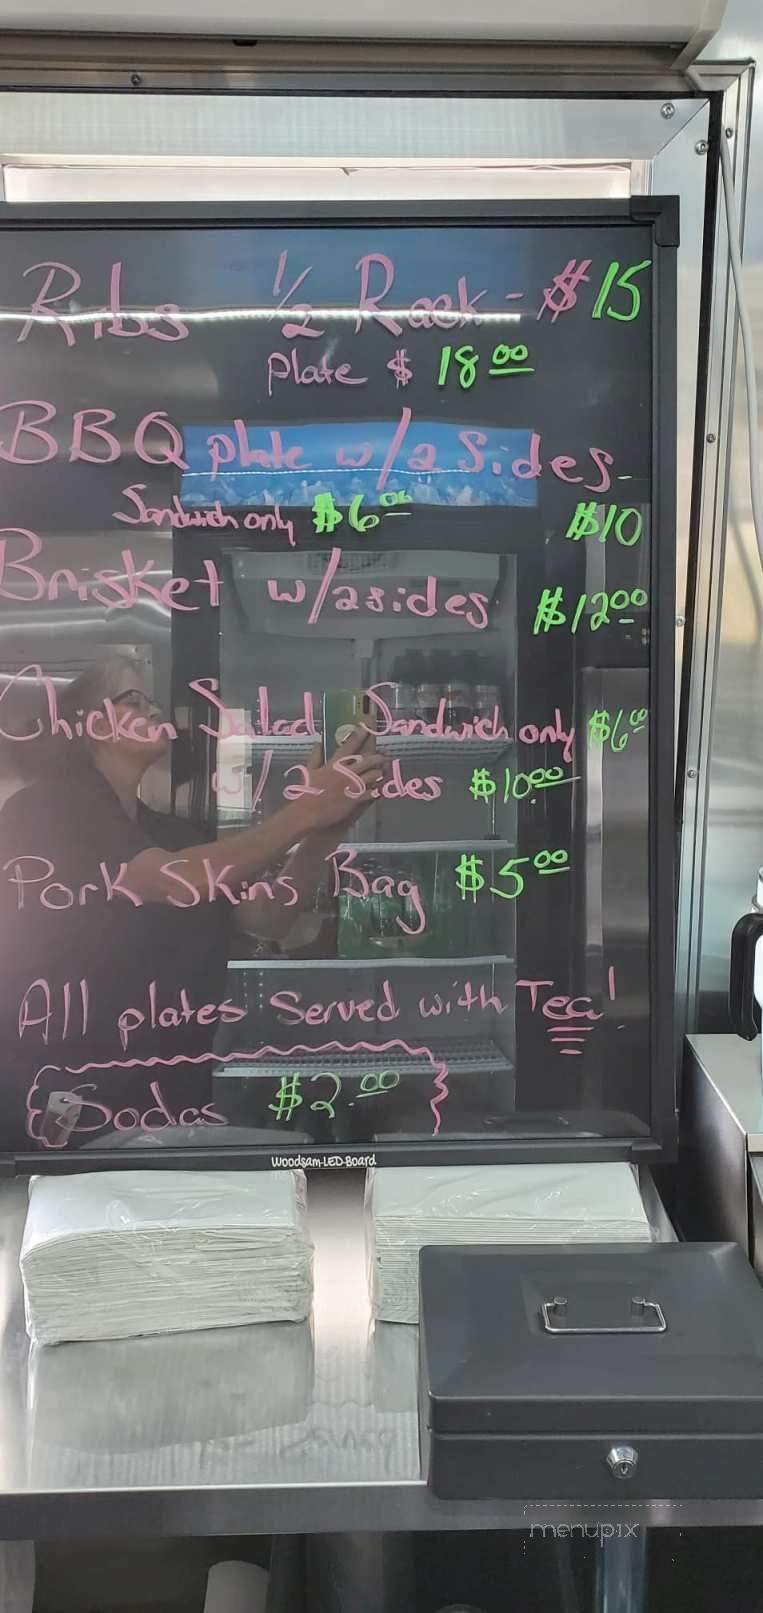 Ribs 1/2 Rack - $15
plate $ 18.00
BBQ plate w/2 Sides -
Sandwich only $6.00 $10
Brisket w/2 sides $12.00
Chicken Salad Sandwich only $6.00
w/2 Sides $10.00
Pork Skins Bag $5.00
All plates Served with Tea!
Sodas $2.00
Woodsam-LED-Board
menupix